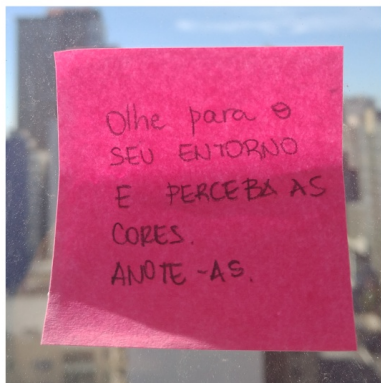 Olhe para o
SEU ENTORNO
E PERCEBA AS
CORES.
ANOTE-AS.